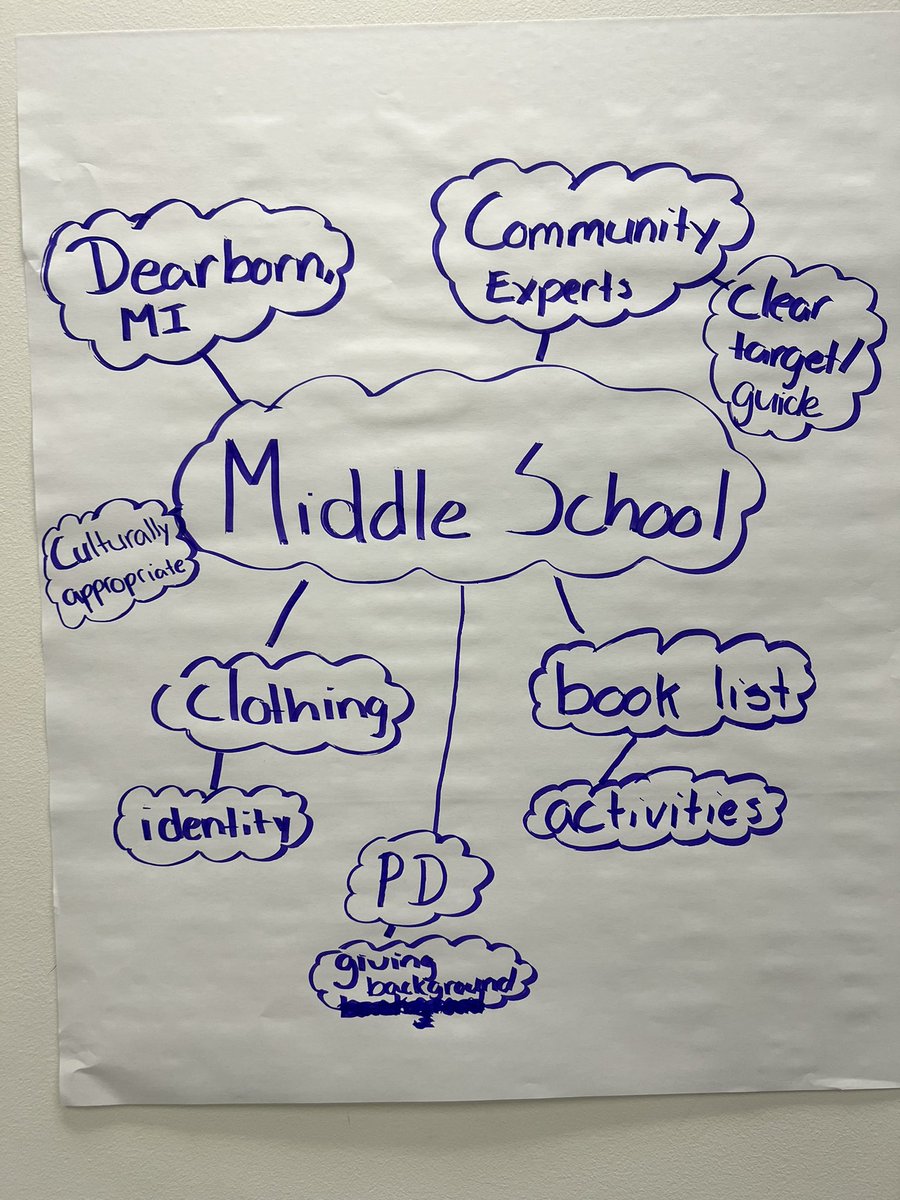 Dearborn,
MI
Community
Experts
Clear
target/
guide
Middle School
Culturally
appropriate
Clothing
identity
book list
activities
PD
giving
background